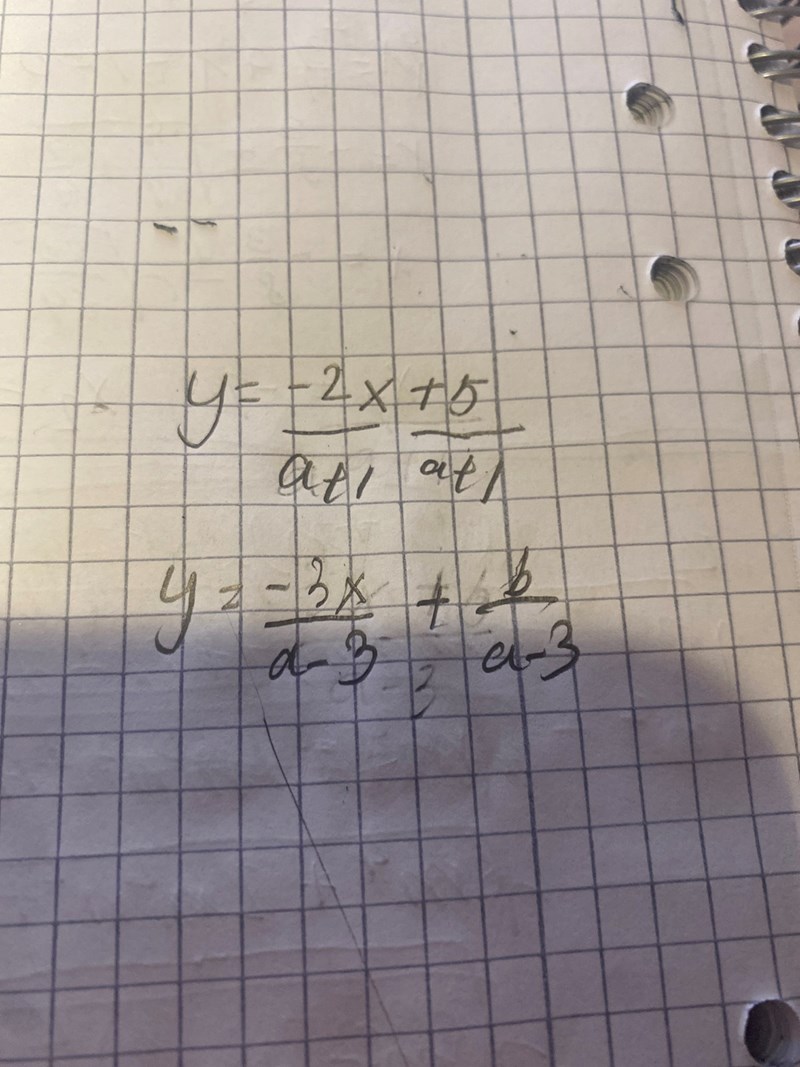 y = -2x/a+1 +5/a+1
y = -3x/a-3 + b/a-3